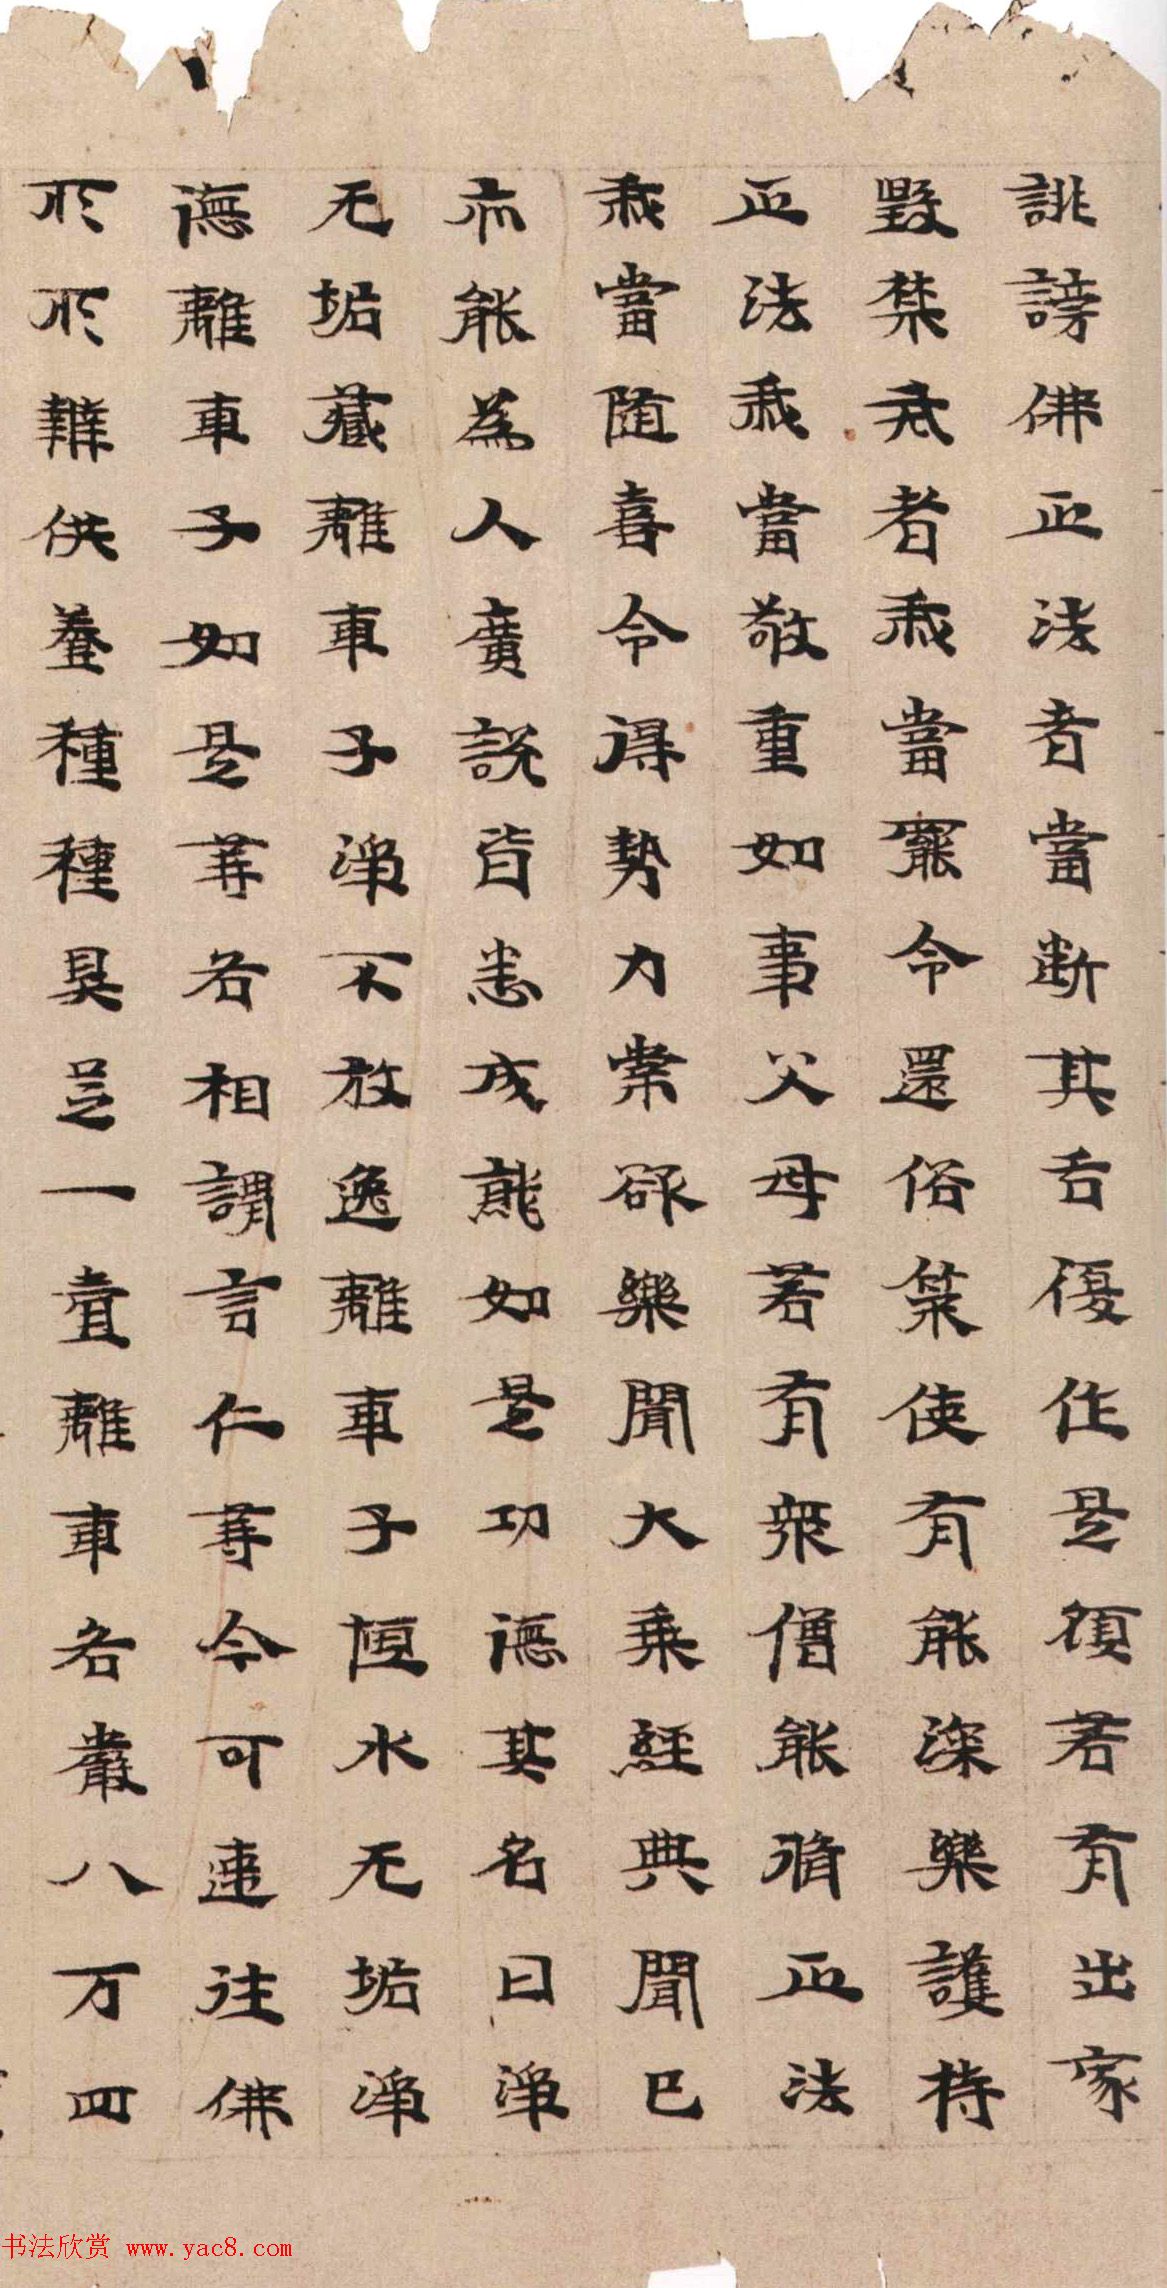 誹謗佛正法者當断其舌復作是願若有出家
毀禁戒者我當罷令還俗策使有能深樂護持
正法我當敬重如事父母若有衆僧能脩正法
我當随喜令得勢力常欲樂聞大乘經典聞已
亦能為人廣說皆悉成就如是功德其名曰淨
无垢藏離車子淨不放逸離車子恒水无垢淨
德離車子如是等各相謂言仁等今可速往佛
所所辦供養種種具足一一離車各嚴八万四
书法欣赏 www.yac8.com